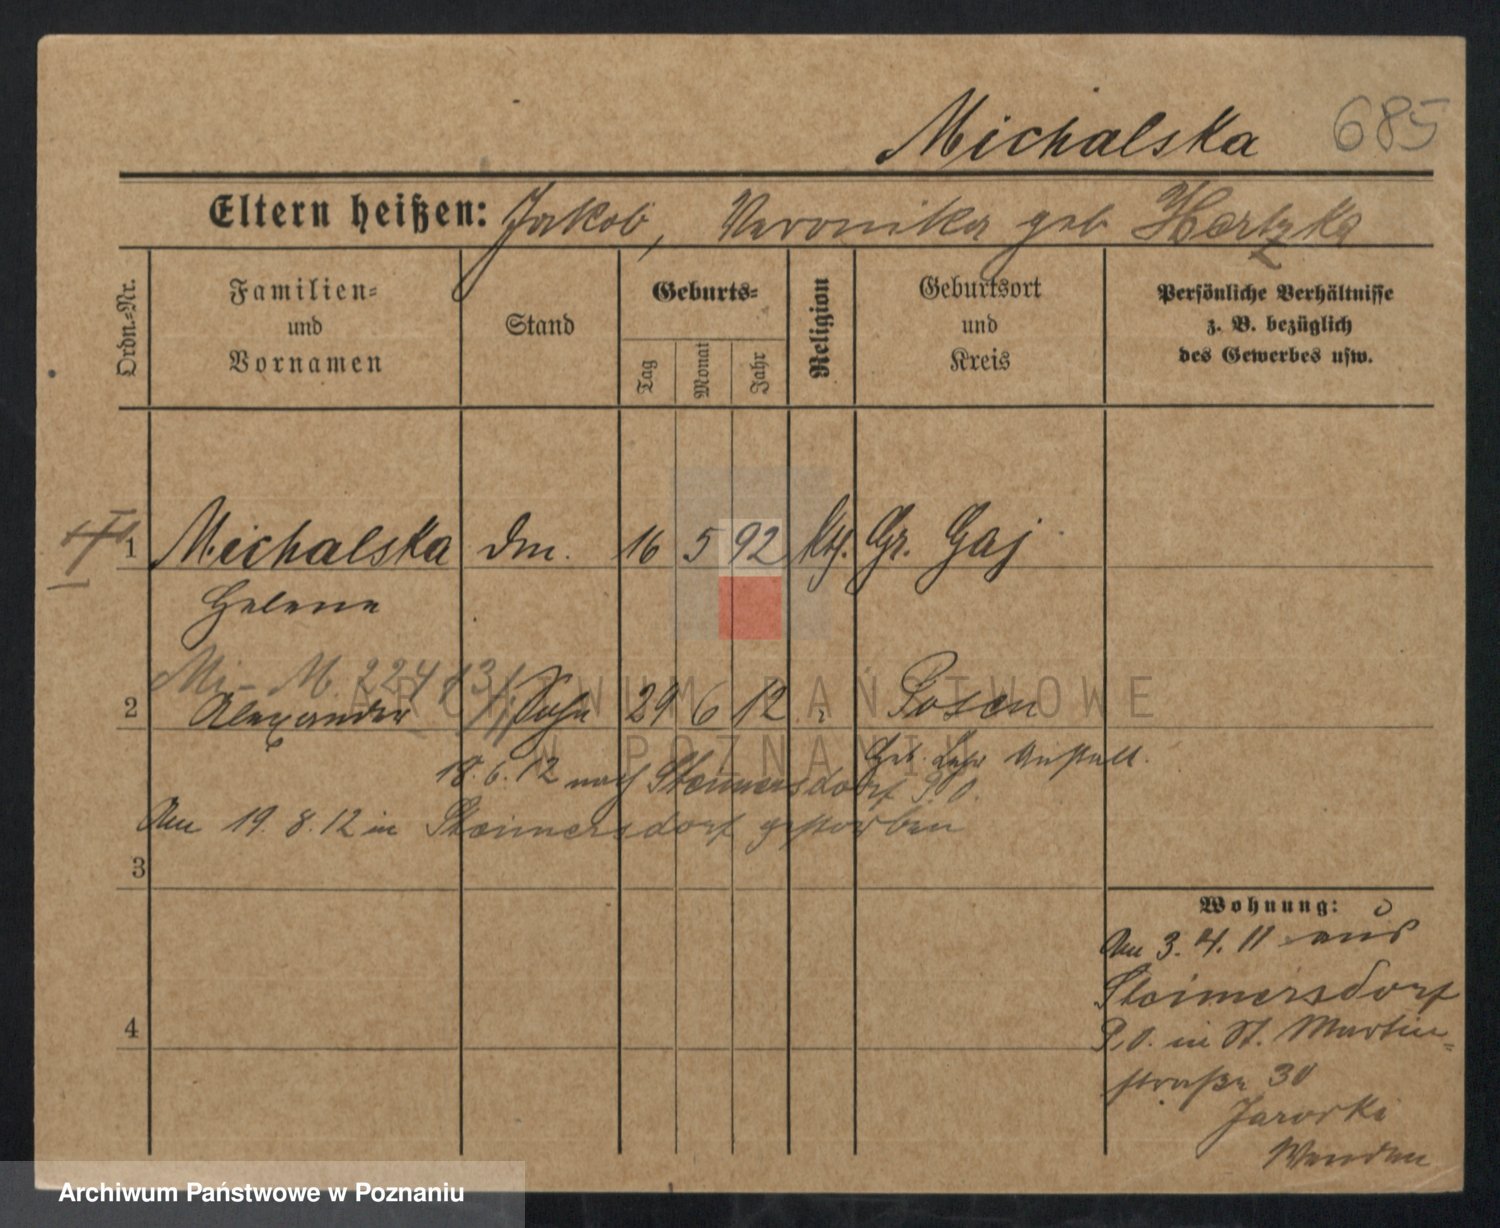 Michalska 685
Eltern heißen: Jakob, Veronika geb Hertzka
Ordn.-Nr.
Familien-
und
Vornamen
Stand
Geburts-
Tag
Monat
Jahr
Religion
Geburtsort
und
Kreis
Persönliche Verhältnisse
z. B. bezüglich
des Gewerbes usw.
1 Michalska 16 5 92 kth. Gr. Gaj
Helene
Mi- M. 224
2 Alexander Sohn 29 6 12 Posen
Geb. Lehr Anstalt.
18.6.12 nach Steimersdorf P.O.
Am 19. 8. 12 in Steimersdorf gestorben
3
4
Wohnung:
Am 3. 4. 11 aus
Steimersdorf
P.O. in St. Martin-
straße 30
ARCHIWUM PAŃSTWOWE
W POZNANIU
Archiwum Państwowe w Poznaniu